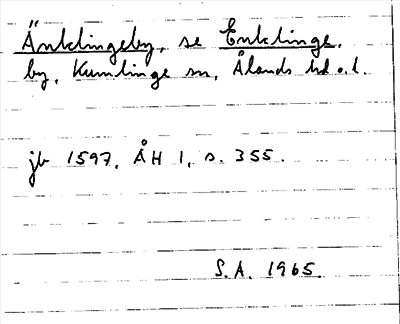 Änklingeby, se Enklinge,
by, Kumlinge sn, Ålands hd o. l.
jb 1597, ÅH 1, s. 355.
S.A. 1965.